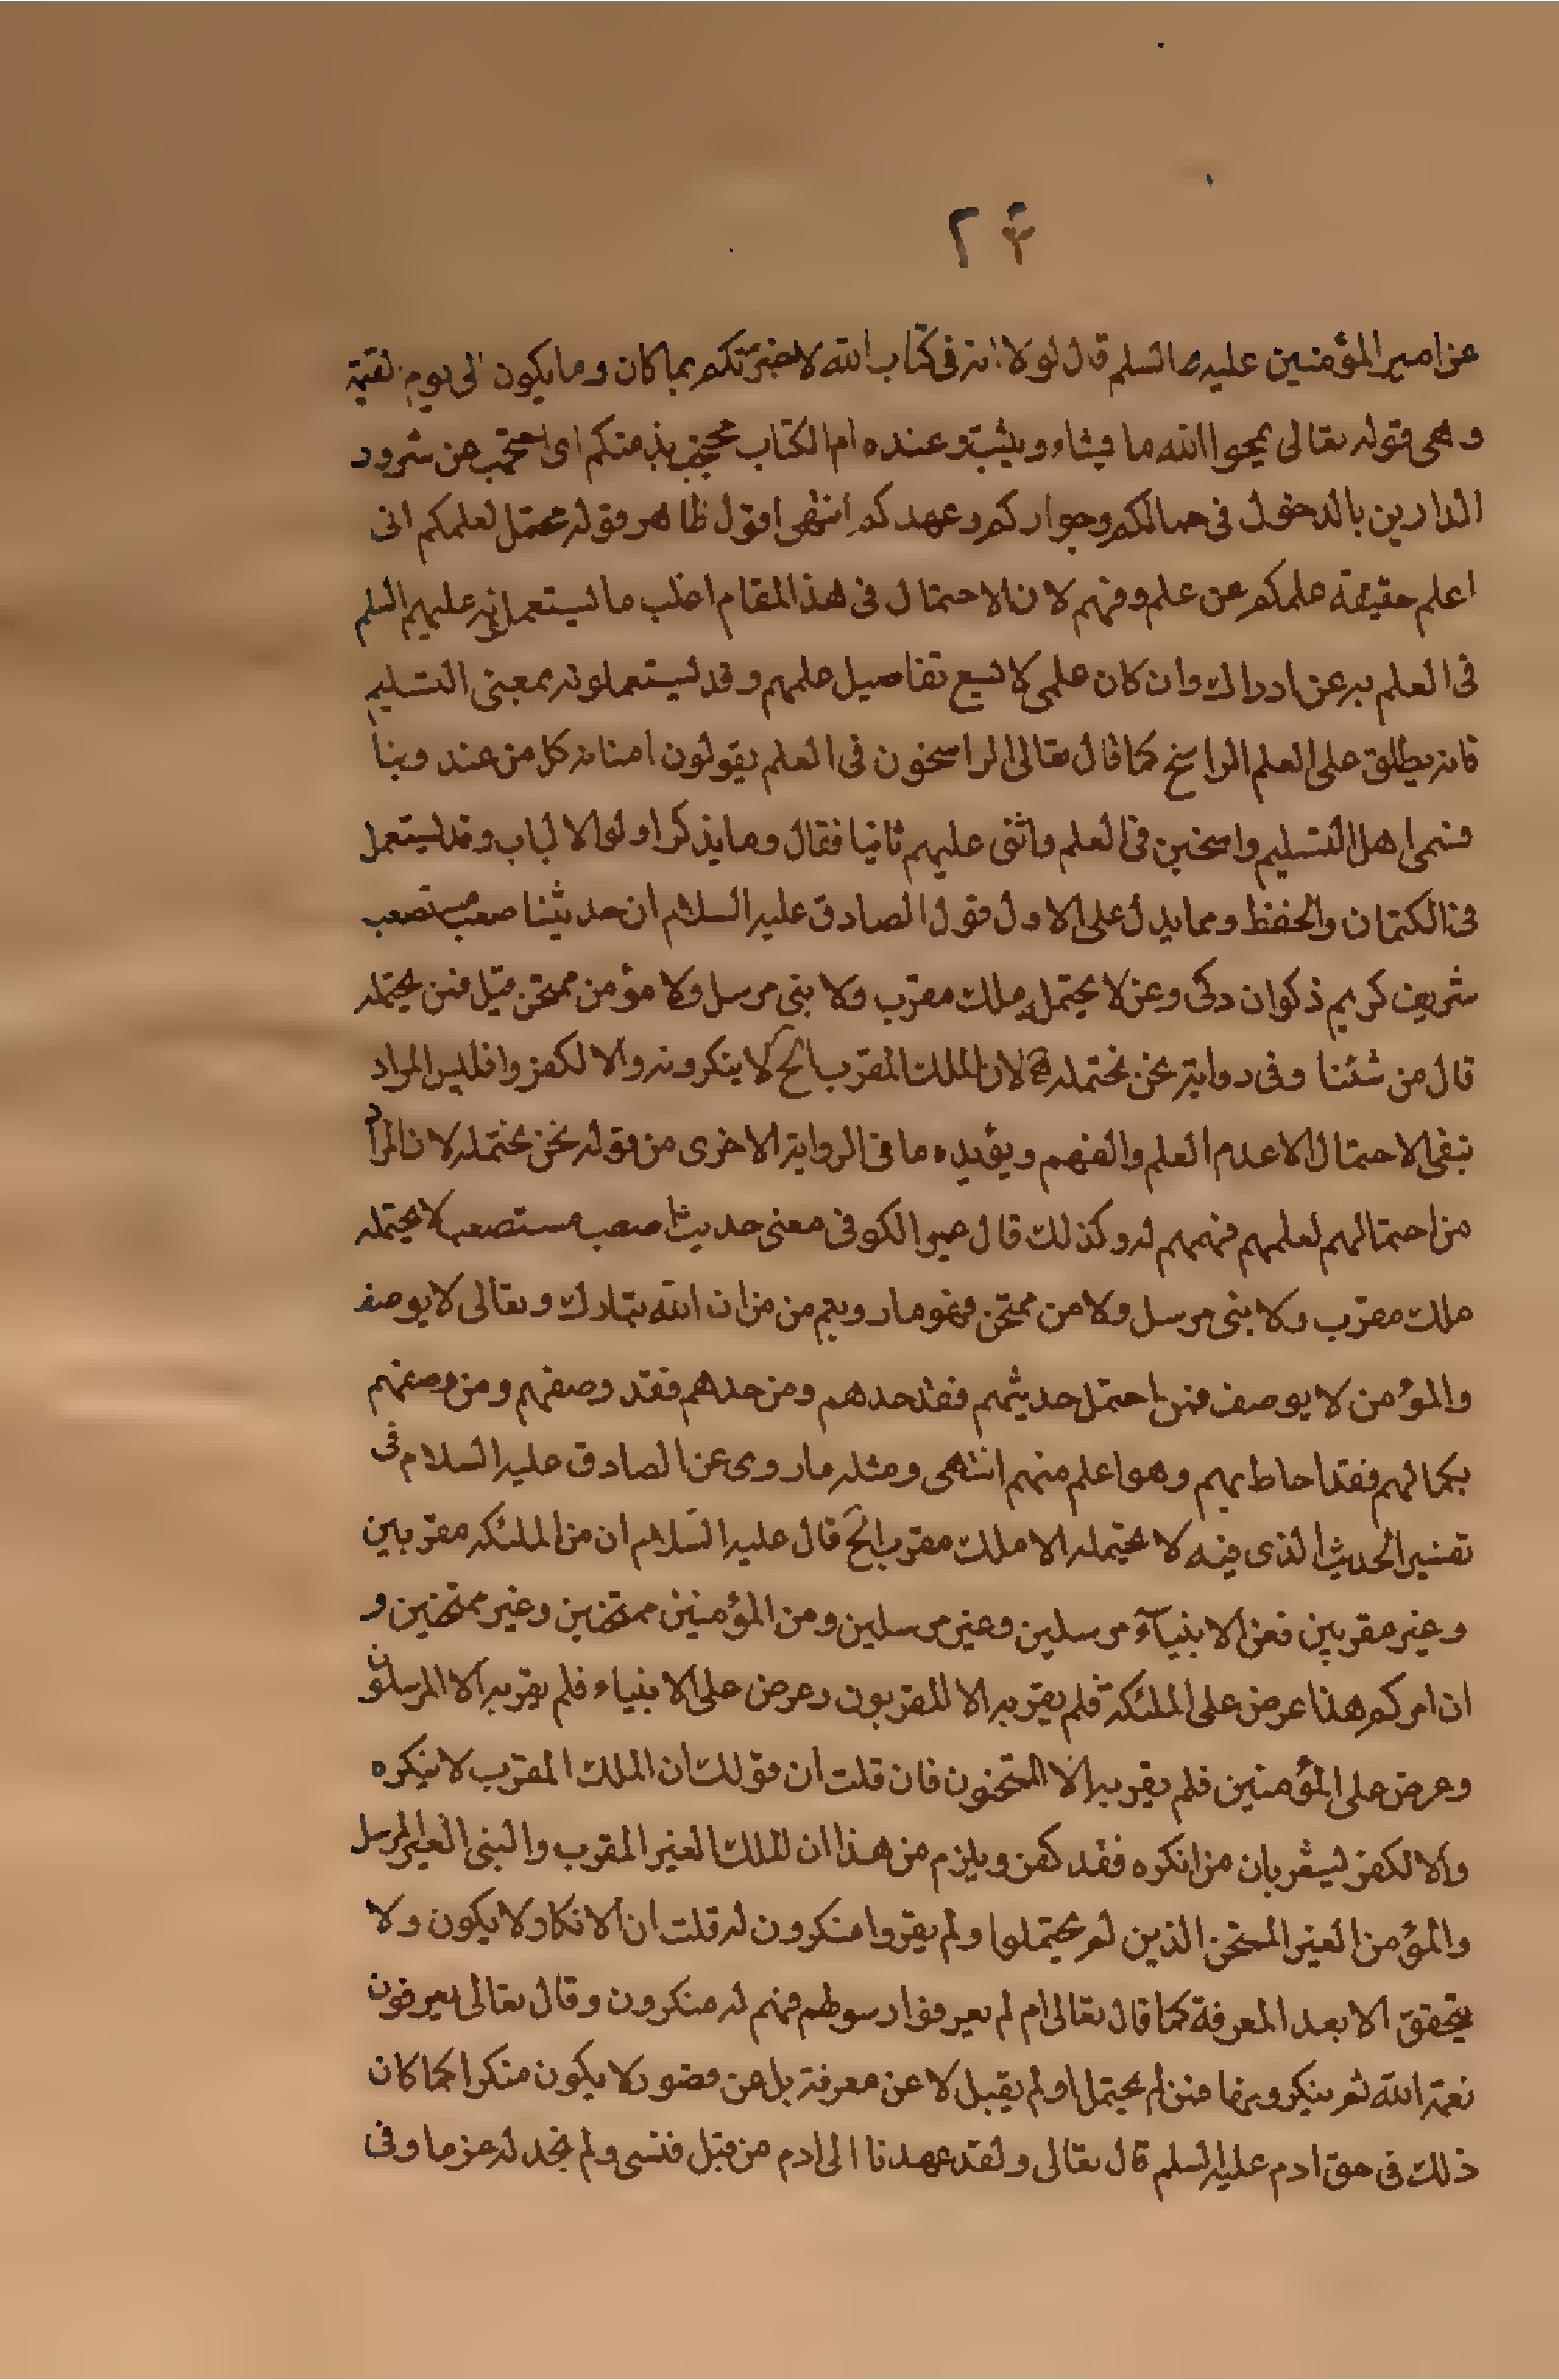 ٢٤
عن امير المؤمنين عليه السلم قال لولا اية فى كتاب الله لاخبرتكم بما كان وما يكون الى يوم القيمة
و هى قوله تعالى يمحوا الله ما يشاء ويثبت وعنده ام الكتاب محتجب بذمتكم اى محتجب عن شرور
الدارين بالدخول فى حمالكم وجواركم وعهدكم انتهى اقول ظاهر قوله محتمل لعلمكم انى
اعلم حقيقة علمكم عن علم وفهم لان الاحتمال فى هذا المقام اغلب ما يستعملونه عليهم السلم
فى العلم به عن ادراك وان كان علمى لا يسع تفاصيل علمهم وقد يستعملونه بمعنى التسليم
فانه يطلق على العلم الراسخ كما قال تعالى الراسخون فى العلم يقولون امنا به كل من عند ربنا
فسمى اهل التسليم راسخين فى العلم واثنى عليهم ثانيا فقال وما يذكر اولوا الالباب وقد يستعمل
فى الكتمان والحفظ ومما يدل على الاول قول الصادق عليه السلام ان حديثنا صعب مستصعب
شريف كريم ذكوان ذكى وعر لا يحتمله ملك مقرب ولا نبى مرسل ولا مؤمن ممتحن قيل فمن يحتمله
قال من شئنا وفى رواية نحن نحتمله لان الملك المقرب الخ لا ينكرونه والا لكفروا فليس المراد
بنفى الاحتمال الا عدم العلم والفهم ويؤيده ما فى الرواية الاخرى من قوله نحن نحتمله لان المراد
من احتمالهم لعلمهم فهمهم له وكذلك قال عمير الكوفى معنى حديثنا صعب مستصعب لا يحتمله
ملك مقرب ولا نبى مرسل ولا من ممتحن فهو ما رويتم من ان الله تبارك وتعالى لا يوصف
والمؤمن لا يوصف فمن احتمل حديثهم فقد حدهم ومن حدهم فقد وصفهم ومن وصفهم
بكمالهم فقد احاط بهم وهو اعلم منهم انتهى ومثله ما روى عن الصادق عليه السلام فى
تفسير الحديث الذى فيه لا يحتمله الا ملك مقرب الخ قال عليه السلام ان من الملئكه مقربين
وغير مقربين فمن الانبيآء مرسلين وغير مرسلين ومن المؤمنين ممتحنين وغير ممتحنين و
ان امركم هذا عرض على الملئكة فلم يقر به الا المقربون وعرض على الانبياء فلم يقر به الا المرسلون
وعرض على المؤمنين فلم يقر به الا الممتحنون فان قلت ان قولك ان الملك المقرب لا ينكره
والا لكفر يشعر بان من انكره فقد كفر ويلزم من هذا ان الملك الغير المقرب والنبى الغير المرسل
والمؤمن الغير الممتحن الذين لم يحتملوا ولم يقروا منكرون له قلت ان الانكار لا يكون ولا
يتحقق الا بعد المعرفة كما قال تعالى ام لم يعرفوا رسولهم فهم له منكرون وقال تعالى يعرفون
نعمة الله ثم ينكرونها فمن لم يحتمل او لم يقبل لا عن معرفة بل عن قصور لا يكون منكرا كما كان
ذلك فى حق ادم عليه السلم قال تعالى ولقد عهدنا الى ادم من قبل فنسى ولم نجد له عزما وفى